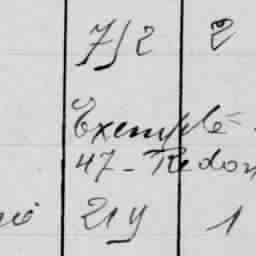 752 2
Exempté
47 - Redon
214 1